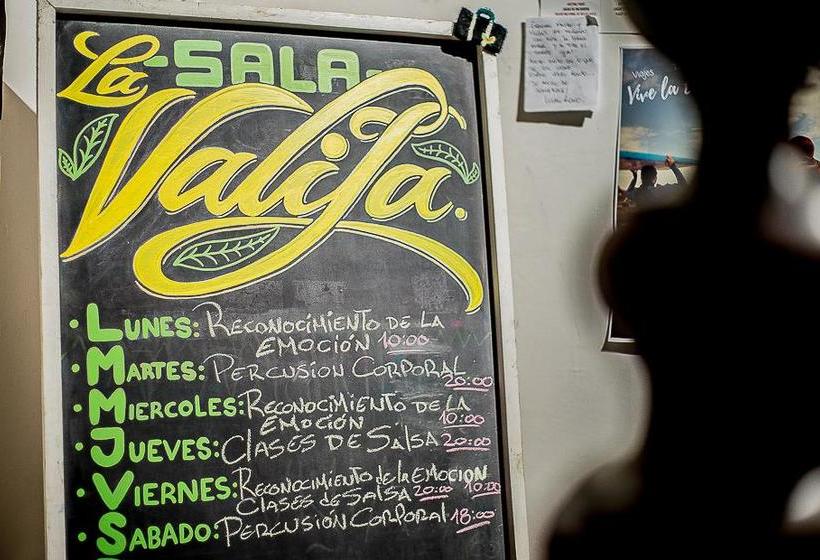 La SALA
Valija.
• LUNES: RECONOCIMIENTO DE LA
EMOCIÓN 10:00
• MARTES: PERCUSION CORPORAL
20:00
• MIERCOLES: RECONOCIMIENTO DE LA
EMOCIÓN 10:00
• JUEVES: CLASES DE SALSA 20:00
• VIERNES: RECONOCIMIENTO de la EMOCION
10:00
CLASES de SALSA 20:00
• SABADO: PERCUSIÓN CORPORAL 18:00
Viajes
Vive la